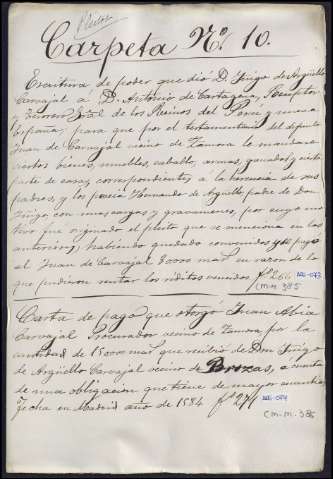 Pleitos
Carpeta Nº 10.
Escritura de poder que dió D. Iñigo de Argüello
Carvajal á D. Antonio de Cartagena, Receptor
y Tesorero Gral de los Reinos del Perú y nueva
España, para que por el testamentario del difunto
Juan de Carvajal vecino de Zamora le mandara
ciertos bienes, muebles, caballos, armas, ganados, y cierta
parte de casas, correspondientes á la herencia de sus
padres, y los poseía Hernando de Argüello padre de Don
Iñigo, con mas cargos y gravamenes, por cuyo mo-
tivo fue originado el pleito que se menciona en las
anteriores, habiendo quedado convenidos y de pago
el Juan de Carvajal 80000 mas en razon de lo
que pudieron rentar los réditos vencidos. fº 266
CM-M. 385
Carta de pago que otorgó Juan Abia
Carvajal Procurador vecino de Zamora por la
cantidad de 15000 mas que recibió de Don Iñigo
de Argüello Carvajal vecino de Brozas, a cuenta
de una obligacion que tiene de mayor cuantia
fecha en Madrid año de 1584 fº 271
CM-M. 385